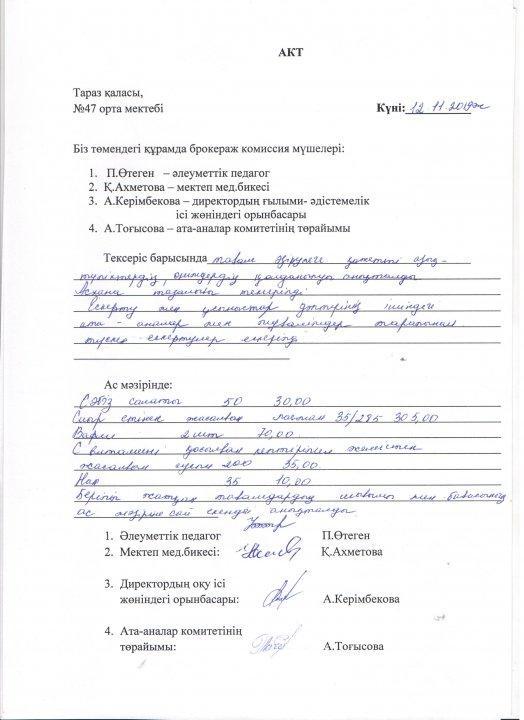 АКТ
Тараз қаласы,
№47 орта мектебі
Күні: 12.11.2019ж
Біз төмендегі құрамда брокераж комиссия мүшелері:
1. П.Өтеген – әлеуметтік педагог
2. Қ.Ахметова – мектеп мед.бикесі
3. А.Керімбекова – директордың ғылыми- әдістемелік
ісі жөніндегі орынбасары
4. А.Тоғысова – ата-аналар комитетінің төрайымы
Тексеріс барысында тағам әзірлеуге қажетті азық-
түліктердің, өнімдердің қолданылуы анықталды
Асхана тазалығы тексерілді.
Ескерту мен ұсыныстар дәптерінің ішіндегі
ата - аналар мен мұғалімдер тарапынан
түскен ескертулер ескерілді
Ас мәзірінде:
Сәбіз салаты 50 30,00
Сиыр етінен жасалған лағман 35/285 305,00
2 шт 70,00
С витамині қосылған кептірілген жемістен
жасалған 200 35,00
Нан 35 10,00
Беріліп жатқан тағамдардың шығымы мен бағасының
ас мәзіріне сай екендігі анықталды.
1. Әлеуметтік педагог П.Өтеген
2. Мектеп мед.бикесі: Қ.Ахметова
3. Директордың оқу ісі
жөніндегі орынбасары: А.Керімбекова
4. Ата-аналар комитетінің
төрайымы: А.Тоғысова